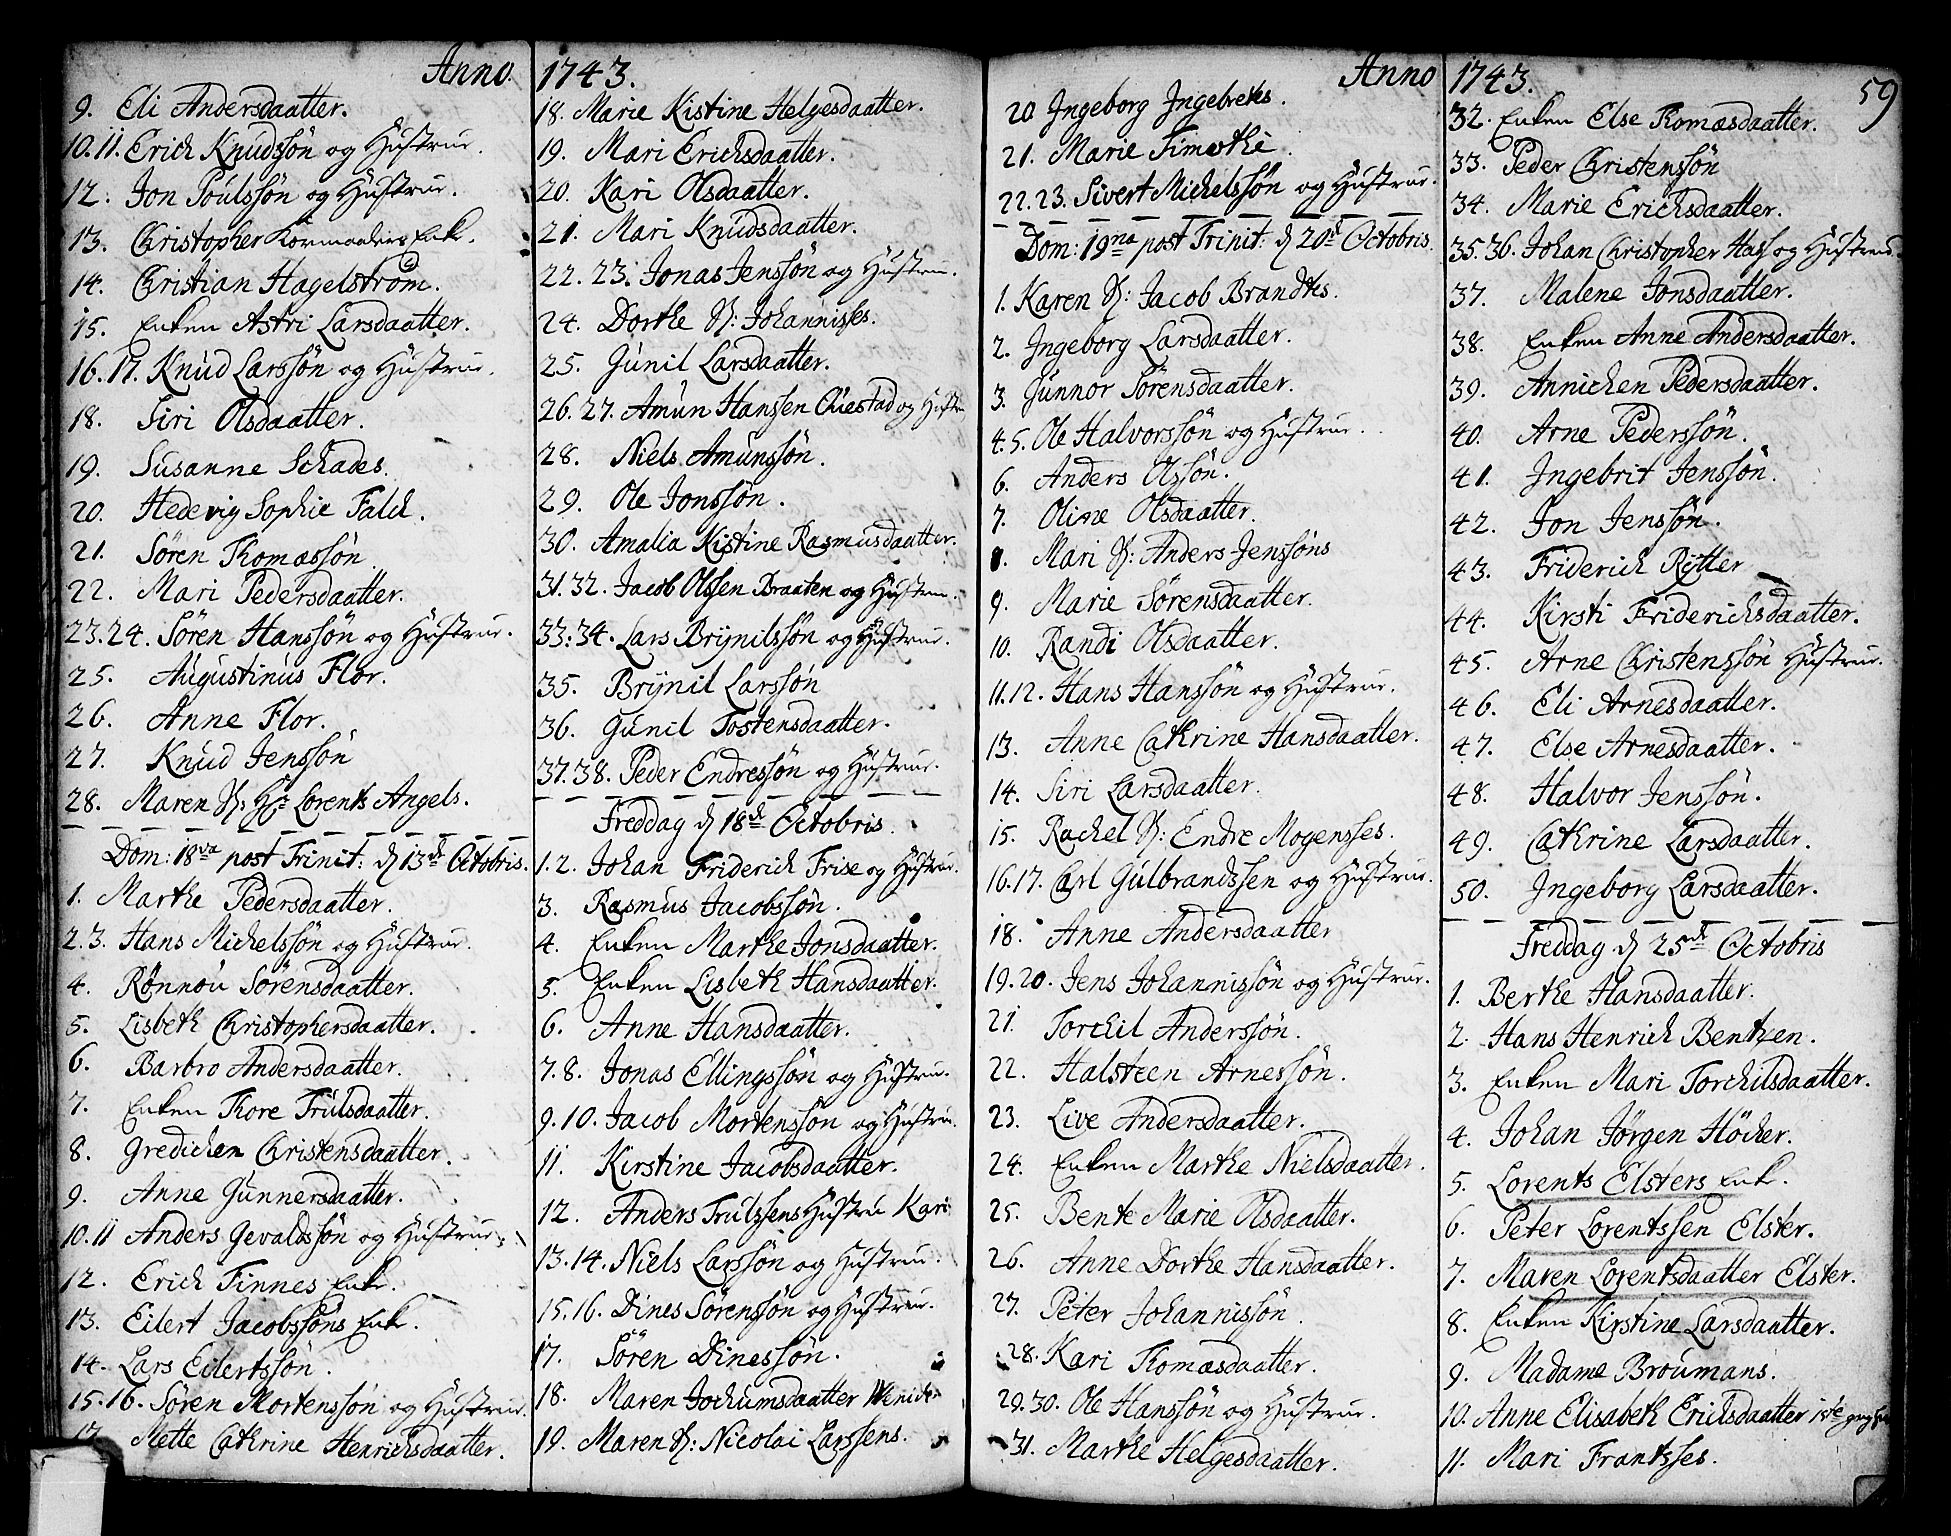 Anno 1743.
9. Eli Andersdaatter.
10.11. Erich Knudssön og Hustrue.
12. Jon Poulssön og Hustrue.
13. Christopher Kormaaders Enk.
14. Christian Hagelström.
15. Enken Astri Larsdaatter.
16.17. Knud Larssön og Hustrue.
18. Siri Olsdaatter.
19. Susanne Schades.
20. Hedevig Sophie Falck.
21. Sören Thomæssön
22. Mari Pedersdaatter.
23.24. Sören Hanssön og Hustrue.
25. Augustinus Flor.
26. Anne Flor.
27. Knud Jenssön
28. Maren S: Hr: Lorents Angels.
Dom: 18va post Trinit: d 13de Octobris.
1. Marthe Pedersdaatter.
2.3. Hans Michelssön og Hustrue.
4. Rönnou Sörensdaatter.
5. Lisbeth Christophersdaatter.
6. Barbro Andersdaatter.
7. Enken Thore Trulsdaatter.
8. Gredichen Christensdaatter.
9. Anne Gunnersdaatter.
10.11 Anders Gevaldssön og Hustrue.
12. Erich Finnes Enk.
13. Eilert Jacobssöns Enk.
14. Lars Eilertssön.
15.16. Sören Mortenssön og Hustrue.
17. Mette Cathrine Henrichsdaatter.
18. Marie Kistine Helgesdaatter.
19. Mari Erichsdaatter.
20. Kari Olsdaatter.
21. Mari Knudsdaatter.
22.23. Jonas Jenssön og Hustrue.
24. Dorthe S: Johannisses.
25. Gunil Larsdaatter.
26.27. Amun Hanssen Questad og Hustr
28. Niels Amunssön.
29. Ole Jonssön.
30. Amalia Kistine Rasmusdaatter.
31.32. Jacob Olssen Braaten og Hustrue.
33.34. Lars Brynilssön og Hustrue.
35. Brynil Larssön
36. Gunil Tostensdaatter.
37.38. Peder Endressön og Hustrue.
Freddag d 18de Octobris.
1.2. Johan Friderich Frise og Hustrue.
3. Rasmus Jacobssön.
4. Enken Marthe Jonsdaatter.
5. Enken Lisbeth Hansdaatter.
6. Anne Hansdaatter.
7.8. Jonas Ellingssön og Hustrue.
9.10. Jacob Mortenssön og Hustrue.
11. Kirstine Jacobsdaatter.
12. Anders Trulssens Hustrue Kari
13.14. Niels Larssön og Hustrue.
15.16. Dines Sörenssön og Hustrue.
17. Sören Dinessön.
18. Maren Jochumsdaatter
19. Maren S: Nicolai Larssens.
Anno 1743. 59
20 Ingeborg Ingebreths.
21. Marie Timothe
22.23. Sivert Michelssön og Hustrue.
Dom: 19na post Trinit: d 20de Octobris.
1. Karen S: Jacob Brandths.
2. Ingeborg Larsdaatter.
3. Gunnor Sörensdaatter.
4.5. Ole Halvorssön og Hustrue.
6. Anders Olssön.
7. Oline Olsdaatter.
8. Mari S: Anders Jenssöns
9. Marie Sörensdaatter.
10. Randi Olsdaatter.
11.12. Hans Hanssön og Hustrue.
13. Anne Cathrine Hansdaatter.
14. Siri Larsdaatter.
15. Rachel S: Endre Mogensses.
16.17. Carl Gulbrandssen og Hustrue.
18. Anne Andersdaatter
19.20. Jens Johannissön og Hustrue.
21. Torchil Anderssön.
22. Halsteen Arnessön.
23. Live Andersdaatter.
24. Enken Marthe Nielsdaatter.
25. Bente Marie Olsdaatter.
26. Anne Dorthe Hansdaatter.
27. Peter Johannissön.
28. Kari Thomæsdaatter.
29.30. Ole Hanssön og Hustrue.
31. Marthe Helgesdaatter.
32. Enken Else Thomæsdaatter.
33. Peder Christenssön
34. Marie Erichsdaatter.
35.36. Johan Christopher Hass og Hustrue.
37. Malene Jonsdaatter.
38. Enken Anne Andersdaatter.
39. Annichen Pedersdaatter.
40. Arne Pederssön.
41. Ingebrit Jenssön.
42. Jon Jenssön.
43. Friderich Rytter
44. Kirsti Friderichsdaatter.
45. Arne Christenssön Hustrue.
46. Eli Arnesdaatter.
47. Else Arnesdaatter.
48. Halvor Jenssön.
49. Cathrine Larsdaatter.
50. Ingeborg Larsdaatter.
Freddag d 25de Octobris
1. Berthe Hansdaatter.
2. Hans Henrich Bentzen.
3. Enken Mari Torchilsdaatter.
4. Johan Jörgen Höcher.
5. Lorents Elsters Enk.
6. Peter Lorentssen Elster.
7. Maren Lorentsdaatter Elster.
8. Enken Kirstine Larsdaatter.
9. Madame Broumans.
10. Anne Elisabeth Erichsdaatter 1ste gang
11. Mari Frantsses.